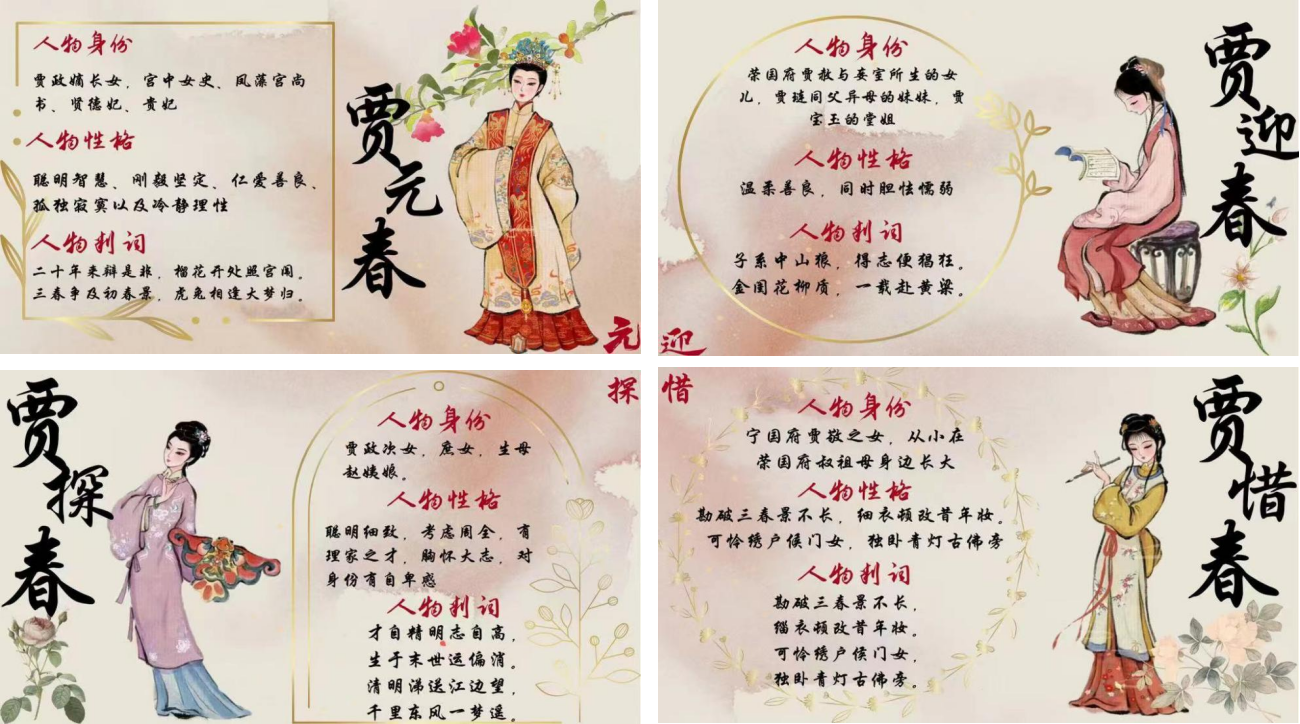 人物身份
贾政嫡长女，宫中女史、凤藻宫尚
书、贤德妃、贵妃
人物性格
聪明智慧、刚毅坚定、仁爱善良、
孤独寂寞以及冷静理性
人物判词
二十年来辩是非，榴花开处照宫闱。
三春争及初春景，虎兔相逢大梦归。
贾元春
元
人物身份
荣国府贾赦与妾室所生的女
儿，贾琏同父异母的妹妹，贾
宝玉的堂姐
人物性格
温柔善良，同时胆怯懦弱
人物判词
子系中山狼，得志便猖狂。
金闺花柳质，一载赴黄粱。
贾迎春
迎
贾探春
探
人物身份
贾政次女，庶女，生母
赵姨娘。
人物性格
聪明细致，考虑周全，有
理家之才，胸怀大志，对
身份有自卑感
人物判词
才自精明志自高，
生于末世运偏消。
清明涕送江边望，
千里东风一梦遥。
惜
人物身份
宁国府贾敬之女，从小在
荣国府叔祖母身边长大
人物性格
勘破三春景不长，细衣顿改昔年妆。
可怜绣户侯门女，独卧青灯古佛旁
人物判词
勘破三春景不长，
缁衣顿改昔年妆。
可怜绣户侯门女，
独卧青灯古佛旁。
贾惜春